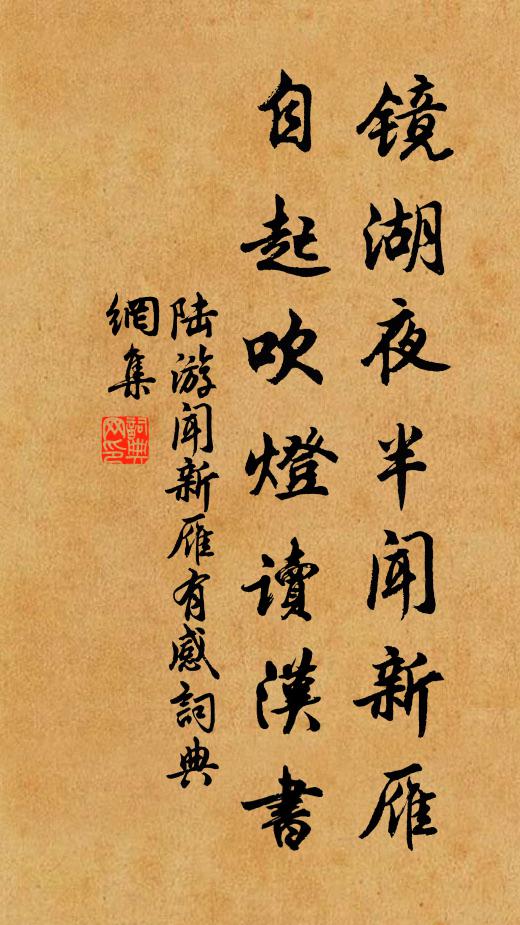 镜湖夜半闻新雁
自起吹燈读漢書
陆游闻新雁有感詞典
網集
詞典
网印